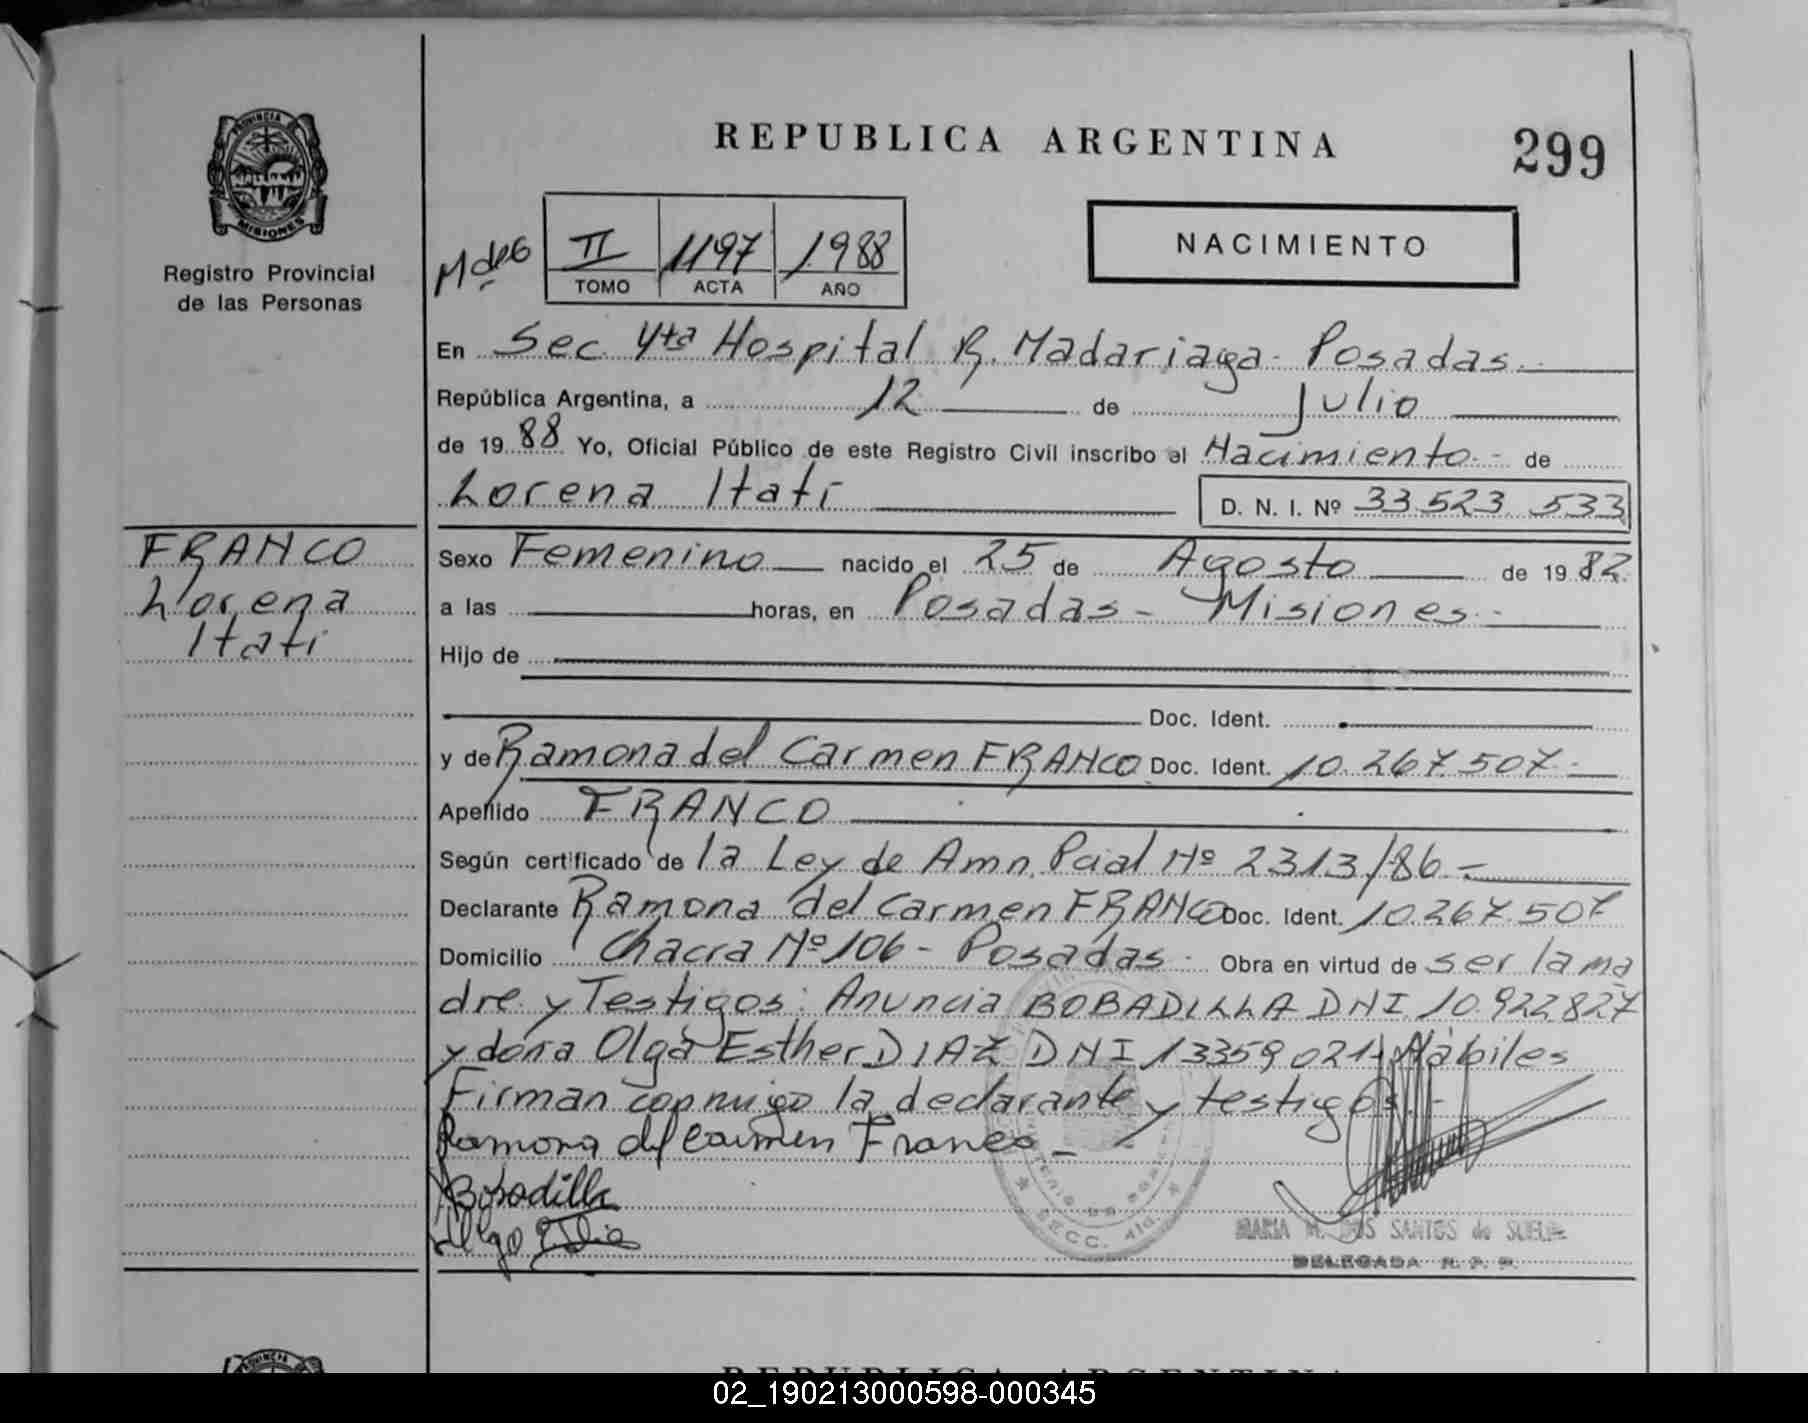 PROVINCIA
MISIONES
Registro Provincial
de las Personas
REPUBLICA ARGENTINA
299
NACIMIENTO
II 1197 1988
TOMO ACTA AÑO
En Sec 4ta Hospital R. Madariaga - Posadas.
República Argentina, a 12 de Julio
de 19 88 Yo, Oficial Público de este Registro Civil inscribo el Nacimiento - de
Lorena Itatí D. N. I. Nº 33.523 533
FRANCO
Lorena
Itatí
Sexo Femenino nacido el 25 de Agosto de 19 82
a las horas, en Posadas - Misiones -
Hijo de
Doc. Ident.
y de Ramona del Carmen FRANCO Doc. Ident. 10.267.507 -
Apellido FRANCO
Según certificado de la Ley de Amn. Pcial Nº 2313/86 -
Declarante Ramona del Carmen FRANCO Doc. Ident. 10.267.507
Domicilio Chacra Nº 106 - Posadas - Obra en virtud de ser la ma
dre y Testigos: Anuncia BOBADILLA DNI 10.922.827
y doña Olga Esther DIAZ DNI 13359021 - Hábiles
Firman conmigo la declarante y testigos. -
Ramona del Carmen Franco -
Bobadilla
Olga
SECC. 4ta
MARIA M. DOS SANTOS de
DELEGADA R. P. P.
PROVINCIA
REPUBLICA ARGENTINA
02_190213000598-000345